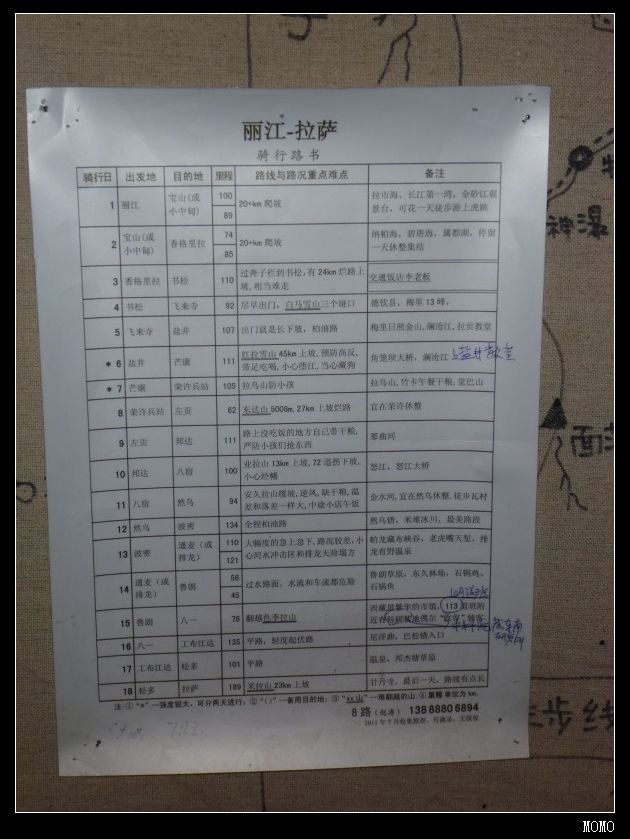 丽江-拉萨
骑行路书
骑行日 出发地 目的地 里程 路线与路况重点难点 备注
1 丽江 宝山(或小中甸) 100 89 20+km爬坡 拉市海, 长江第一湾, 金沙江观景台, 可花一天徒步游上虎跳
2 宝山(或小中甸) 香格里拉 74 85 20+km爬坡 纳帕海, 碧塔海, 属都湖, 停留一天休整集结
3 香格里拉 书松 110 过奔子栏到书松, 有24km烂路上坡, 相当难走 交通饭店李老板
4 书松 飞来寺 92 尽早出门, 白马雪山三个垭口 德钦县, 梅里13峰,
5 飞来寺 盐井 107 出门就是长下坡, 柏油路 梅里日照金山, 澜沧江, 拉贡教堂
* 6 盐井 芒康 111 红拉雪山45km上坡, 预防高反, 带足吃喝, 小心堕江, 当心藏狗 角笼坝大桥, 澜沧江 上盐井教堂
* 7 芒康 荣许兵站 105 拉乌山防小孩 拉乌山, 竹卡午餐干粮, 觉巴山
8 荣许兵站 左贡 62 东达山5008m, 27km上坡烂路 宜在荣许休整
9 左贡 邦达 111 路上没吃饭的地方自己带干粮, 严防小孩们抢东西 那曲河
10 邦达 八宿 100 业拉山13km上坡, 72道拐下坡, 小心经幡 怒江, 怒江大桥
11 八宿 然乌 94 安久拉山缓坡, 逆风, 缺干粮, 温差和落差一样大, 中途小店午饭 金水河, 宜在然乌休整, 徒步瓦村
12 然乌 波密 134 全程柏油路 然乌错, 米堆冰川, 最美路段
13 波密 通麦(或排龙) 110 121 大幅度的急上急下, 路况较差, 小心河水冲击区和排龙天险塌方 帕龙藏布峡谷, 老虎嘴天堑, 排龙有野温泉
14 通麦(或排龙) 鲁朗 56 45 过水路面, 水流和车流都危险 鲁朗草原, 东久林场, 石锅鸡, 石锅鱼
15 鲁朗 八一 78 翻越色季拉山 西藏最繁华的市镇, 113
16 八一 工布江达 135 平路, 轻度起伏路 尼洋曲, 巴松错入口
17 工布江达 松多 101 平路 温泉, 邦杰塘草原
18 松多 拉萨 189 米拉山23km上坡 甘丹寺, 最后一天, 路线有点长
注:①"*"—强度较大, 可分两天进行; ②"()"—备用目的地; ③"xx山"—难翻越的山. ④里程单位为km.
8路(赵涛) 13888806894
2011年7月收集整理, 可演录, 无版权
神瀑
MOMO